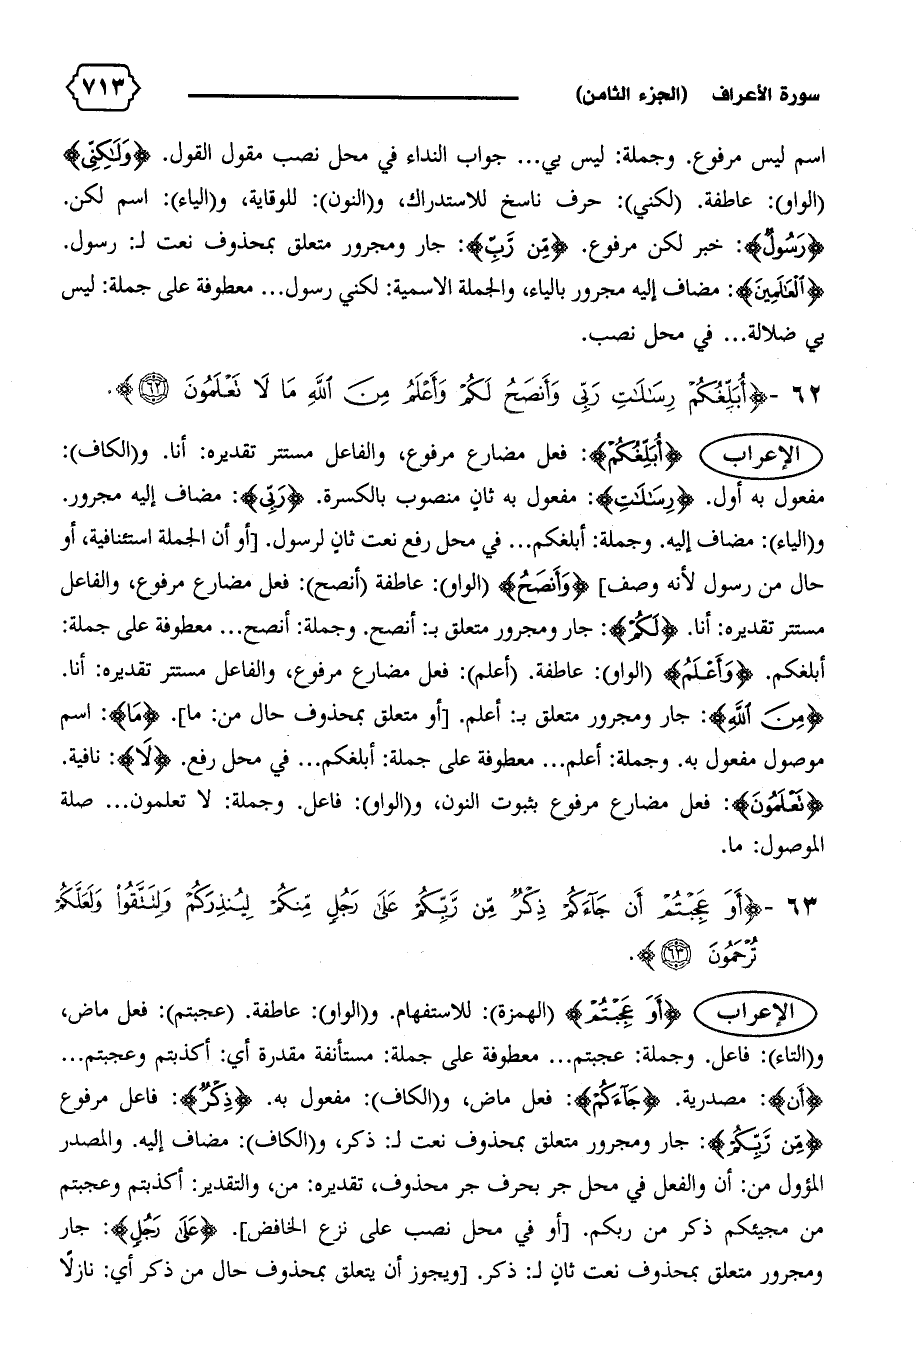 سورة الأعراف (الجزء الثامن) ٧١٣
اسم ليس مرفوع. وجملة: ليس بي... جواب النداء في محل نصب مقول القول. ﴿وَلَٰكِنِّي﴾
(الواو): عاطفة. (لكني): حرف ناسخ للاستدراك، و(النون): للوقاية، و(الياء): اسم لكن.
﴿رَسُولٌ﴾: خبر لكن مرفوع. ﴿مِّن رَّبِّ﴾: جار ومجرور متعلق بمحذوف نعت لـ: رسول.
﴿ٱلْعَٰلَمِينَ﴾: مضاف إليه مجرور بالياء، والجملة الاسمية: لكني رسول... معطوفة على جملة: ليس
بي ضلالة... في محل نصب.
٦٢ -﴿أُبَلِّغُكُمْ رِسَٰلَٰتِ رَبِّى وَأَنصَحُ لَكُمْ وَأَعْلَمُ مِنَ ٱللَّهِ مَا لَا تَعْلَمُونَ ٦٢﴾.
الإعراب ﴿أُبَلِّغُكُمْ﴾: فعل مضارع مرفوع، والفاعل مستتر تقديره: أنا. و(الكاف):
مفعول به أول. ﴿رِسَٰلَٰتِ﴾: مفعول به ثانٍ منصوب بالكسرة. ﴿رَبِّى﴾: مضاف إليه مجرور.
و(الياء): مضاف إليه. وجملة: أبلغكم... في محل رفع نعت ثانٍ لرسول. [أو أن الجملة استئنافية، أو
حال من رسول لأنه وصف] ﴿وَأَنصَحُ﴾ (الواو): عاطفة (أنصح): فعل مضارع مرفوع، والفاعل
مستتر تقديره: أنا. ﴿لَكُمْ﴾: جار ومجرور متعلق بـ: أنصح. وجملة: أنصح... معطوفة على جملة:
أبلغكم. ﴿وَأَعْلَمُ﴾ (الواو): عاطفة. (أعلم): فعل مضارع مرفوع، والفاعل مستتر تقديره: أنا.
﴿مِنَ ٱللَّهِ﴾: جار ومجرور متعلق بـ: أعلم. [أو متعلق بمحذوف حال من: ما]. ﴿مَا﴾: اسم
موصول مفعول به. وجملة: أعلم... معطوفة على جملة: أبلغكم... في محل رفع. ﴿لَا﴾: نافية.
﴿تَعْلَمُونَ﴾: فعل مضارع مرفوع بثبوت النون، و(الواو): فاعل. وجملة: لا تعلمون... صلة
الموصول: ما.
٦٣ -﴿أَوَ عَجِبْتُمْ أَن جَآءَكُمْ ذِكْرٌ مِّن رَّبِّكُمْ عَلَىٰ رَجُلٍ مِّنكُمْ لِيُنذِرَكُمْ وَلِتَتَّقُوا۟ وَلَعَلَّكُمْ
تُرْحَمُونَ ٦٣﴾.
الإعراب ﴿أَوَ عَجِبْتُمْ﴾ (الهمزة): للاستفهام. و(الواو): عاطفة. (عجبتم): فعل ماض،
و(التاء): فاعل. وجملة: عجبتم... معطوفة على جملة: مستأنفة مقدرة أي: أكذبتم وعجبتم...
﴿أَن﴾: مصدرية. ﴿جَآءَكُمْ﴾: فعل ماض، و(الكاف): مفعول به. ﴿ذِكْرٌ﴾: فاعل مرفوع
﴿مِّن رَّبِّكُمْ﴾: جار ومجرور متعلق بمحذوف نعت لـ: ذكر، و(الكاف): مضاف إليه. والمصدر
المؤول من: أن والفعل في محل جر بحرف جر محذوف، تقديره: من، والتقدير: أكذبتم وعجبتم
من مجيئكم ذكر من ربكم. [أو في محل نصب على نزع الخافض]. ﴿عَلَىٰ رَجُلٍ﴾: جار
ومجرور متعلق بمحذوف نعت ثانٍ لـ: ذكر. [ويجوز أن يتعلق بمحذوف حال من ذكر أي: نازلًا